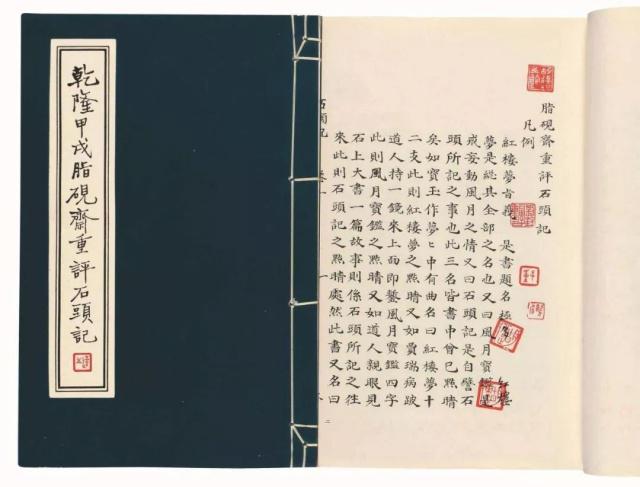 乾隆甲戌脂硯齋重評石頭記
脂硯齋重評石頭記
凡例
紅樓夢旨義 是書題名極 紅樓
夢是總其全部之名也又曰風月寶鑑是
戒妄動風月之情又曰石頭記是自譬石
頭所記之事也此三名皆書中曾已點睛
矣如寶玉作夢〻中有曲名曰紅樓夢十
二支此則紅樓夢之點睛又如賈瑞病跛
道人持一鏡來上面即鏨風月寶鑑四字
此則風月寶鑑之點睛又如道人親眼見
石上大書一篇故事則係石頭所記之往
來此則石頭記之點睛處然此書又名曰